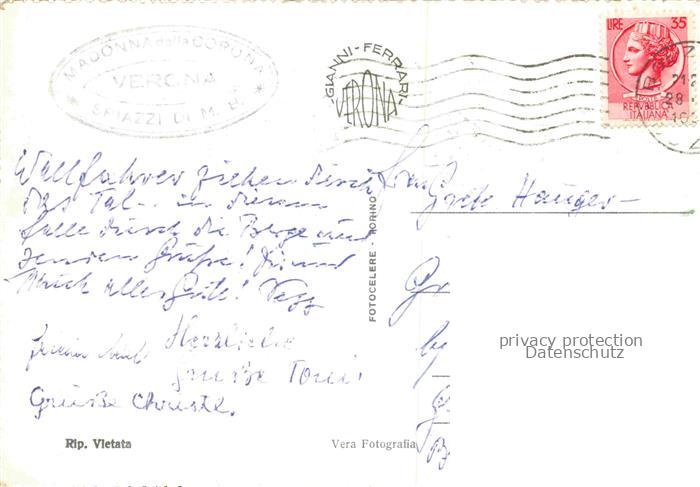 MADONNA della CORONA
VERONA
SPIAZZI DI M. B.
GIANNI-FERRARI-
VERONA
LIRE 35
REPVBBLICA
ITALIANA
Wallfahrer ziehen durch
das Tal - in diesem
Falle durch die Berge und
senden Grüße! Dir und
Mich alles Gute!
Herzliche
Grüße Toni
Grüße Christl.
Grete Hauges-
Gr
privacy protection
Datenschutz
FOTOCELERE - TORINO
Rip. Vietata
Vera Fotografia